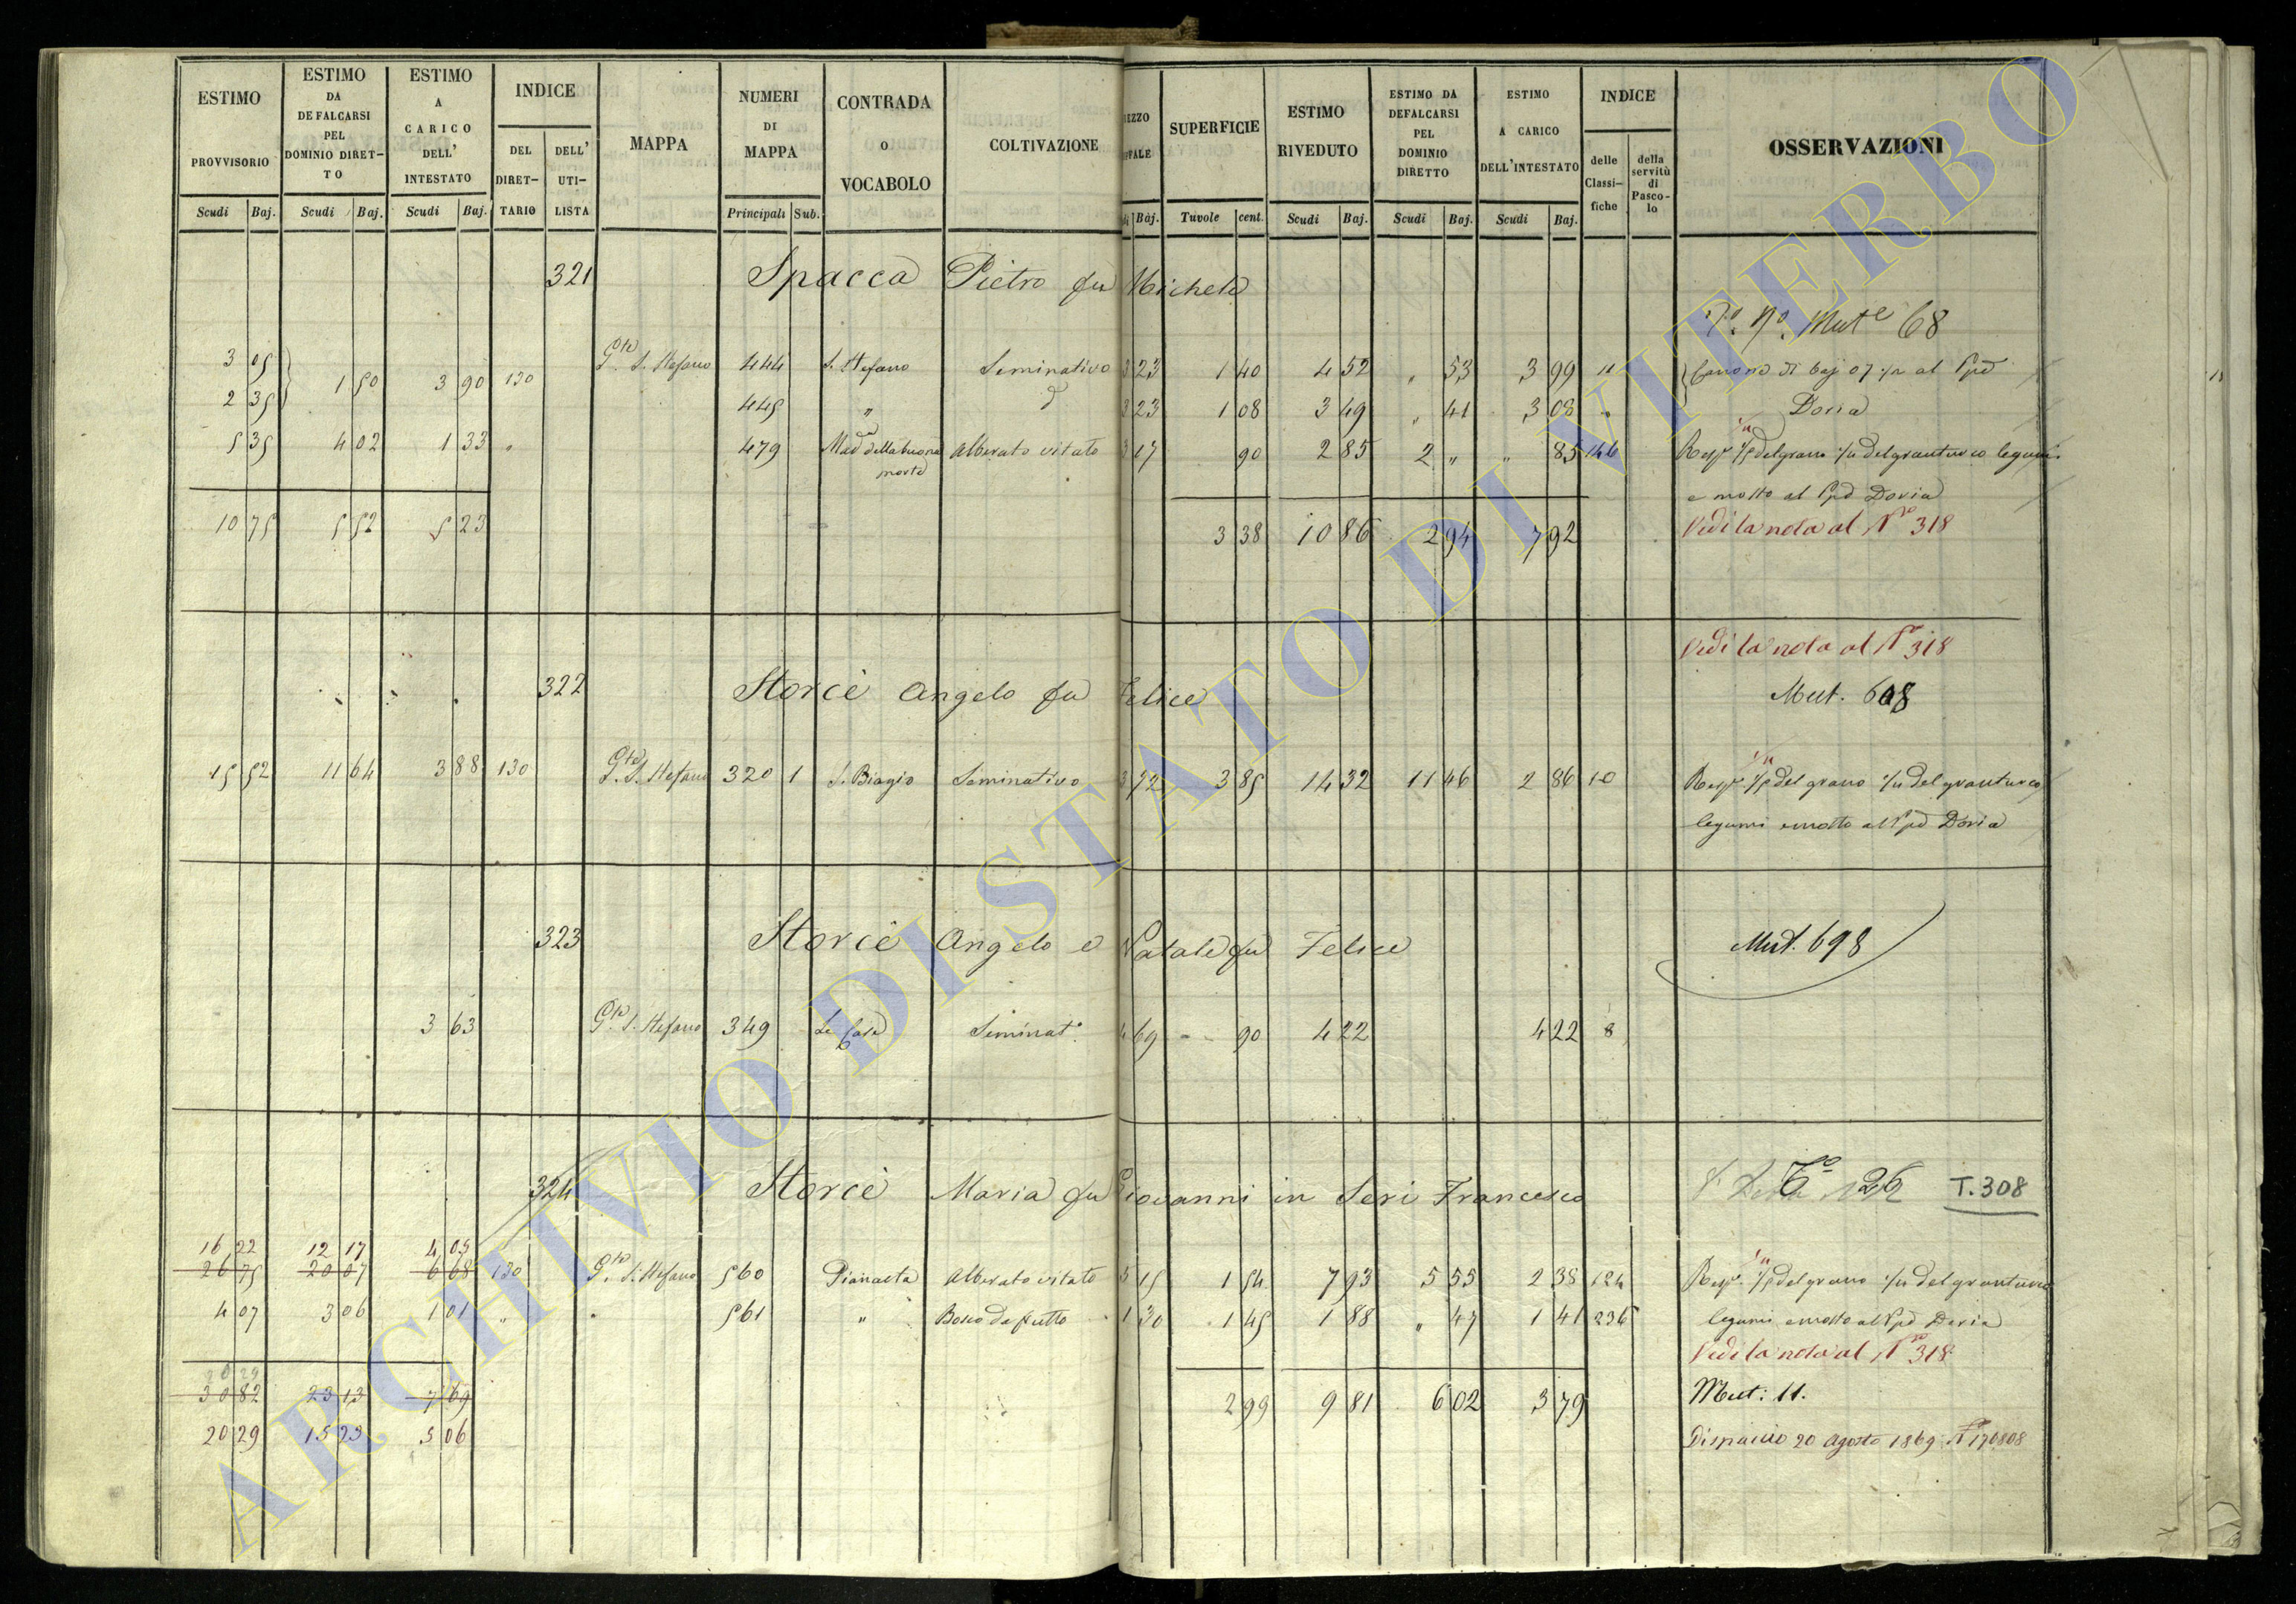 ESTIMO PROVVISORIO Scudi Baj.
ESTIMO DA DEFALCARSI PEL DOMINIO DIRETTO Scudi Baj.
ESTIMO A CARICO DELL' INTESTATO Scudi Baj.
INDICE DEL DIRETTARIO DELL' UTILISTA
MAPPA
NUMERI DI MAPPA Principali Sub.
CONTRADA O VOCABOLO
COLTIVAZIONE
Baj.
SUPERFICIE Tavole cent.
ESTIMO RIVEDUTO Scudi Baj.
ESTIMO DA DEFALCARSI PEL DOMINIO DIRETTO Scudi Baj.
ESTIMO A CARICO DELL'INTESTATO Scudi Baj.
INDICE delle Classifiche della servitù di Pascolo
OSSERVAZIONI
321 Spacca Pietro fu Michele
Mut.e 68
3 05 1 50 3 90 130 Gtta S. Stefano 444 S. Stefano Seminativo 3 23 1 40 4 52 " 53 3 99 11 Canone di baj 07 al Ppe
2 35 445 " 3 23 1 08 3 49 " 41 3 08 " Doria
5 35 4 02 1 33 " 479 Mad.a della buona morte Alberato vitato 3 17 90 2 85 2 " " 85 146 1/5 del grano 1/4 del granturco legumi
e mosto al Ppe Doria
10 75 5 52 5 23 3 38 10 86 2 94 7 92 Vedi la nota al No 318
Vedi la nota al No 318
322 Storcè Angelo fu Felice Mut. 608
15 52 11 64 3 88 130 Gtta S. Stefano 320 1 S. Biagio Seminativo 3 72 3 85 14 32 11 46 2 86 10 1/5 del grano 1/4 del granturco
legumi e mosto al Ppe Doria
323 Storcè Angelo e Natale fu Felice Mut. 698
3 63 Gtta S. Stefano 349 Le Case Seminato 4 69 90 4 22 4 22 8
324 Storcè Maria fu Giovanni in Seri Francesco 26 T.308
16 22 12 17 4 05
26 75 20 07 6 68 130 Gtta S. Stefano 560 Pianaeta Alberato vitato 5 15 1 54 7 93 5 55 2 38 124 1/5 del grano 1/4 del granturco
4 07 3 06 1 01 " " 561 " Bosco da frutto 1 30 1 45 1 88 " 47 1 41 236 legumi e mosto al Ppe Doria
Vedi la nota al No 318
30 82 23 13 7 69 2 99 9 81 6 02 3 79 Mut: 11.
20 29 15 23 5 06 Dispaccio 20 Agosto 1869 No 170808
ARCHIVIO DI STATO DI VITERBO